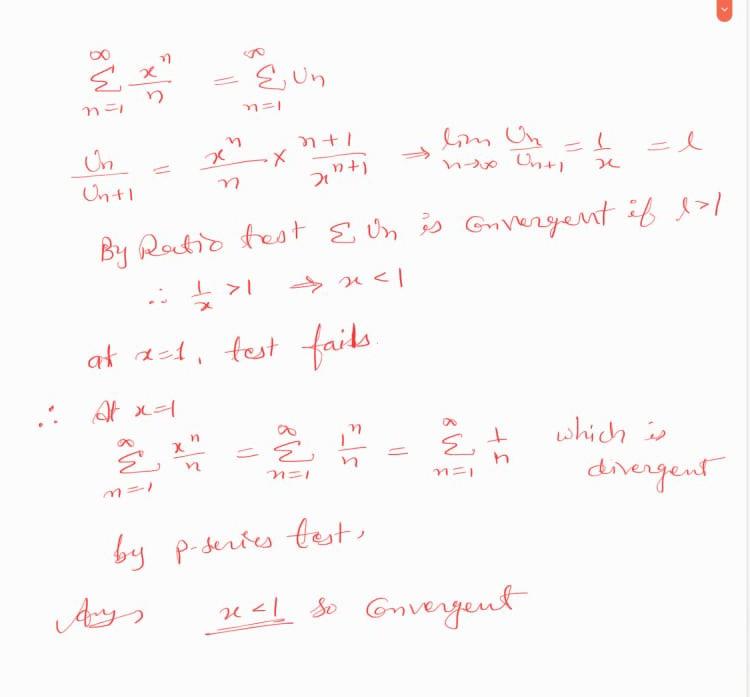 ∞ ∑ n=1 xⁿ/n = ∞ ∑ n=1 Un
Un/Un+1 = xⁿ/n × n+1/xⁿ⁺¹ ⇒ lim n→∞ Un/Un+1 = 1/x = l
By Ratio test Σ Un is convergent if l>1
∴ 1/x >1 ⇒ x<1
at x=1, test fails.
∴ At x=1
∞ ∑ n=1 xⁿ/n = ∞ ∑ n=1 1ⁿ/n = ∞ ∑ n=1 1/n which is
divergent
by p-series test,
Ans x<1 so Convergent